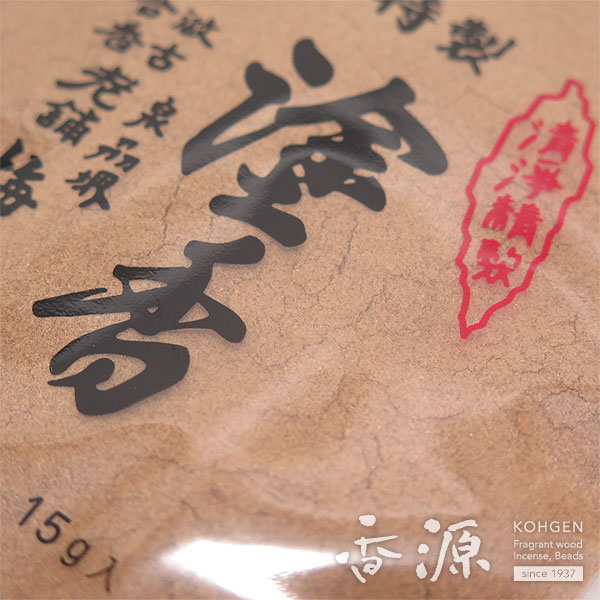 特製
塗香
清浄精製
泉州堺
老舗
15g入
香源
KOHGEN
Fragrant wood
Incense, Beads
since 1937